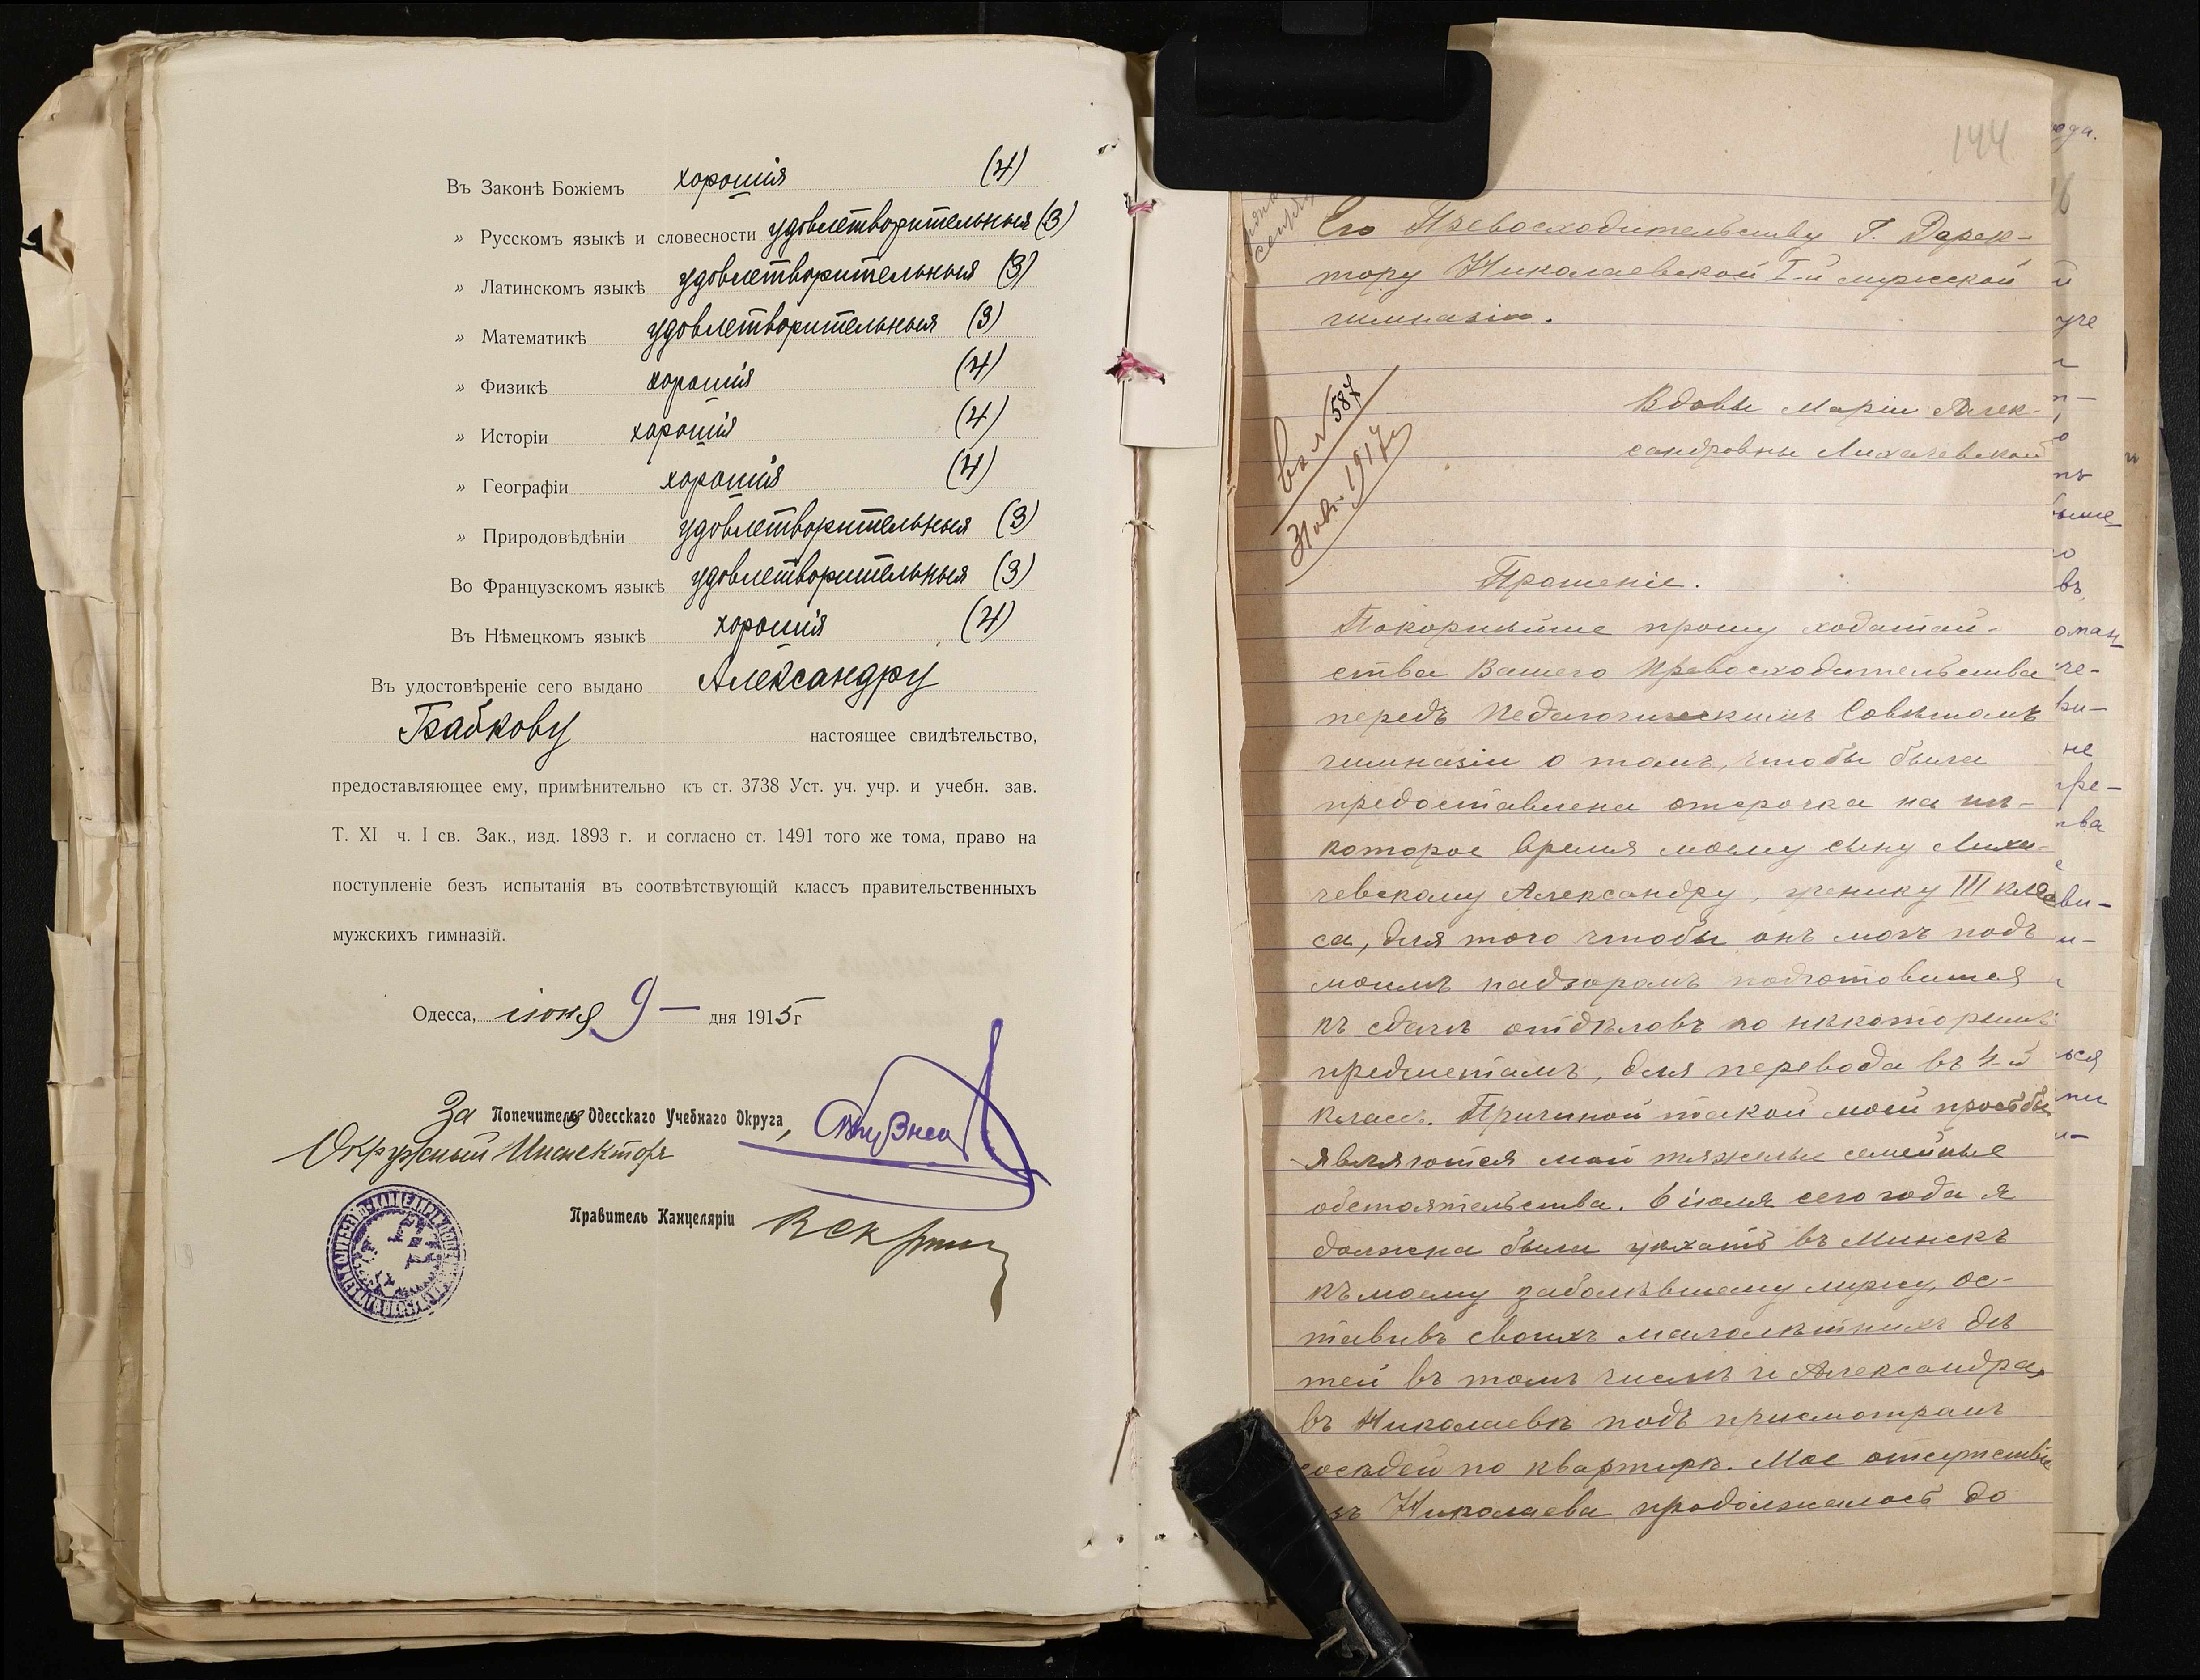 Въ Законѣ Божіемъ хорошія (4)
» Русскомъ языкѣ и словесности удовлетворительныя (3)
» Латинскомъ языкѣ удовлетворительныя (3)
» Математикѣ удовлетворительныя (3)
» Физикѣ хорошія (4)
» Исторіи хорошія (4)
» Географіи хорошія (4)
» Природовѣдѣніи удовлетворительныя (3)
Во Французскомъ языкѣ удовлетворительныя (3)
Въ Нѣмецкомъ языкѣ хорошія (4)
Въ удостовѣреніе сего выдано Александру
настоящее свидѣтельство,
предоставляющее ему, примѣнительно къ ст. 3738 Уст. уч. учр. и учебн. зав.
Т. XI ч. I св. Зак., изд. 1893 г. и согласно ст. 1491 того же тома, право на
поступленіе безъ испытанія въ соотвѣтствующій классъ правительственныхъ
мужскихъ гимназій.
Одесса, іюня 9 — дня 1915 г
За Попечителя Одесскаго Учебнаго Округа,
Окружный Инспекторъ
Правитель Канцеляріи
144
Его Превосходительству Г. Дирек-
тору Николаевской I-й мужской
гимназіи.
Вдовы Маріи Алек-
сандровны Лихачевской
Вх. № 587
1917
Прошеніе.
Покорнѣйше прошу ходатай-
ства Вашего Превосходительства
передъ Педагогическимъ Совѣтомъ
гимназіи о томъ, чтобы была
предоставлена отсрочка на нѣ-
которое время моему сыну Лиха-
чевскому Александру, ученику III клас
са, для того чтобы онъ могъ подъ
моимъ надзоромъ подготовится
къ сдачѣ отдѣловъ по нѣкоторымъ
предметамъ, для перевода въ 4-й
классъ. Причиной такой моей просьбы
являются мои тяжелые семейные
обстоятельства. 6 іюля сего года я
должна была уѣхать въ Минскъ
къ моему заболѣвшему мужу, ос-
тавивъ своихъ малолѣтнихъ дѣ
тей въ томъ числѣ и Александра,
въ Николаевѣ подъ присмотромъ
сосѣдей по квартирѣ. Мое отсутствіе
изъ Николаева продолжалось до